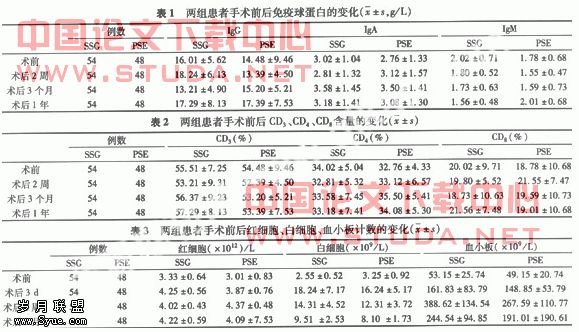 表 1 两组患者手术前后免疫球蛋白的变化(x̄±s,g/L)
例数 IgG IgA IgM
SSG PSE SSG PSE SSG PSE SSG PSE
术前 54 48 16.01±5.62 14.48±9.46 3.02±1.04 2.76±1.33 2.02±0.71 1.78±0.68
术后2周 54 48 18.24±6.13 13.39±4.50 2.81±1.32 3.12±1.57 1.80±0.52 1.55±0.47
术后3个月 54 48 13.21±4.90 15.20±5.21 3.58±1.45 3.50±1.41 1.73±0.63 1.59±0.73
术后1年 54 48 17.29±8.13 17.39±7.53 3.18±1.41 3.08±1.30 1.56±0.48 2.01±0.68
中国论文下载中心
HTTP://WWW.STUDA.NET
表 2 两组患者手术前后CD3、CD4、CD8含量的变化(x̄±s)
例数 CD3(%) CD4(%) CD8(%)
SSG PSE SSG PSE SSG PSE SSG PSE
术前 54 48 55.51±7.25 54.48±9.46 34.02±5.04 32.76±4.33 20.02±9.71 18.78±10.68
术后2周 54 48 53.21±9.31 57.39±4.50 32.81±5.32 33.12±6.57 19.80±5.52 21.55±7.47
术后3个月 54 48 56.37±9.23 53.20±5.21 33.58±7.45 35.50±5.41 18.73±10.63 19.59±10.73
术后1年 54 48 57.29±8.13 53.39±7.53 33.18±7.41 34.08±5.30 21.56±7.48 19.01±10.68
中国论文下载中心
WWW.STUDA.NET
表 3 两组患者手术前后红细胞、白细胞、血小板计数的变化(x̄±s)
例数 红细胞(×10¹²/L) 白细胞(×10⁹/L) 血小板(×10⁹/L)
SSG PSE SSG PSE SSG PSE SSG PSE
术前 54 48 3.33±0.64 3.01±0.83 2.55±0.52 3.25±0.92 53.15±25.74 49.15±20.74
术后3 d 54 48 4.25±0.56 3.87±0.76 18.24±7.17 16.24±5.17 161.83±83.79 148.85±53.79
48 4.02±0.43 4.37±0.48 14.31±4.52 12.31±3.72 388.62±134.54 267.59±110.77
48 4.22±0.59 4.09±7.53 9.51±2.53 8.10±1.73 244.54±94.85 191.01±90.61
岁月联盟
www.syue.com